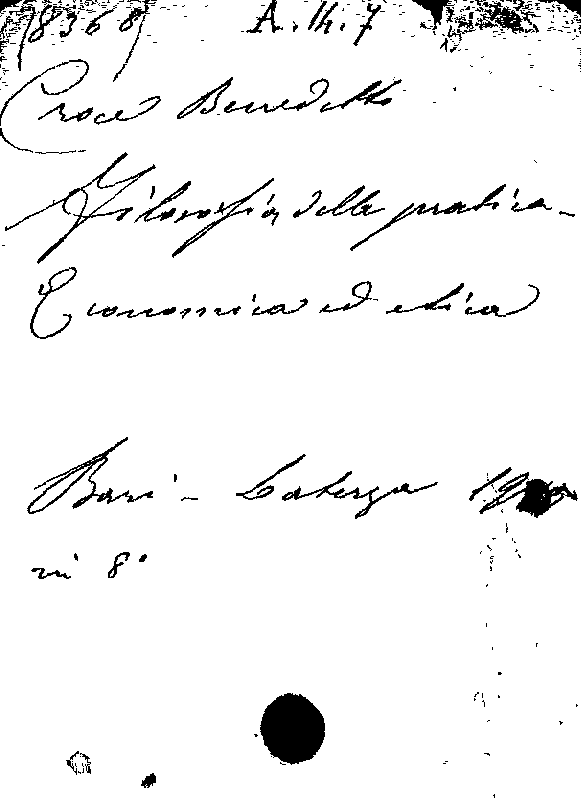 (8368) A.th.7
Croce Benedetto
Filosofia della pratica -
Economica ed etica
Bari - Laterza
in 8°